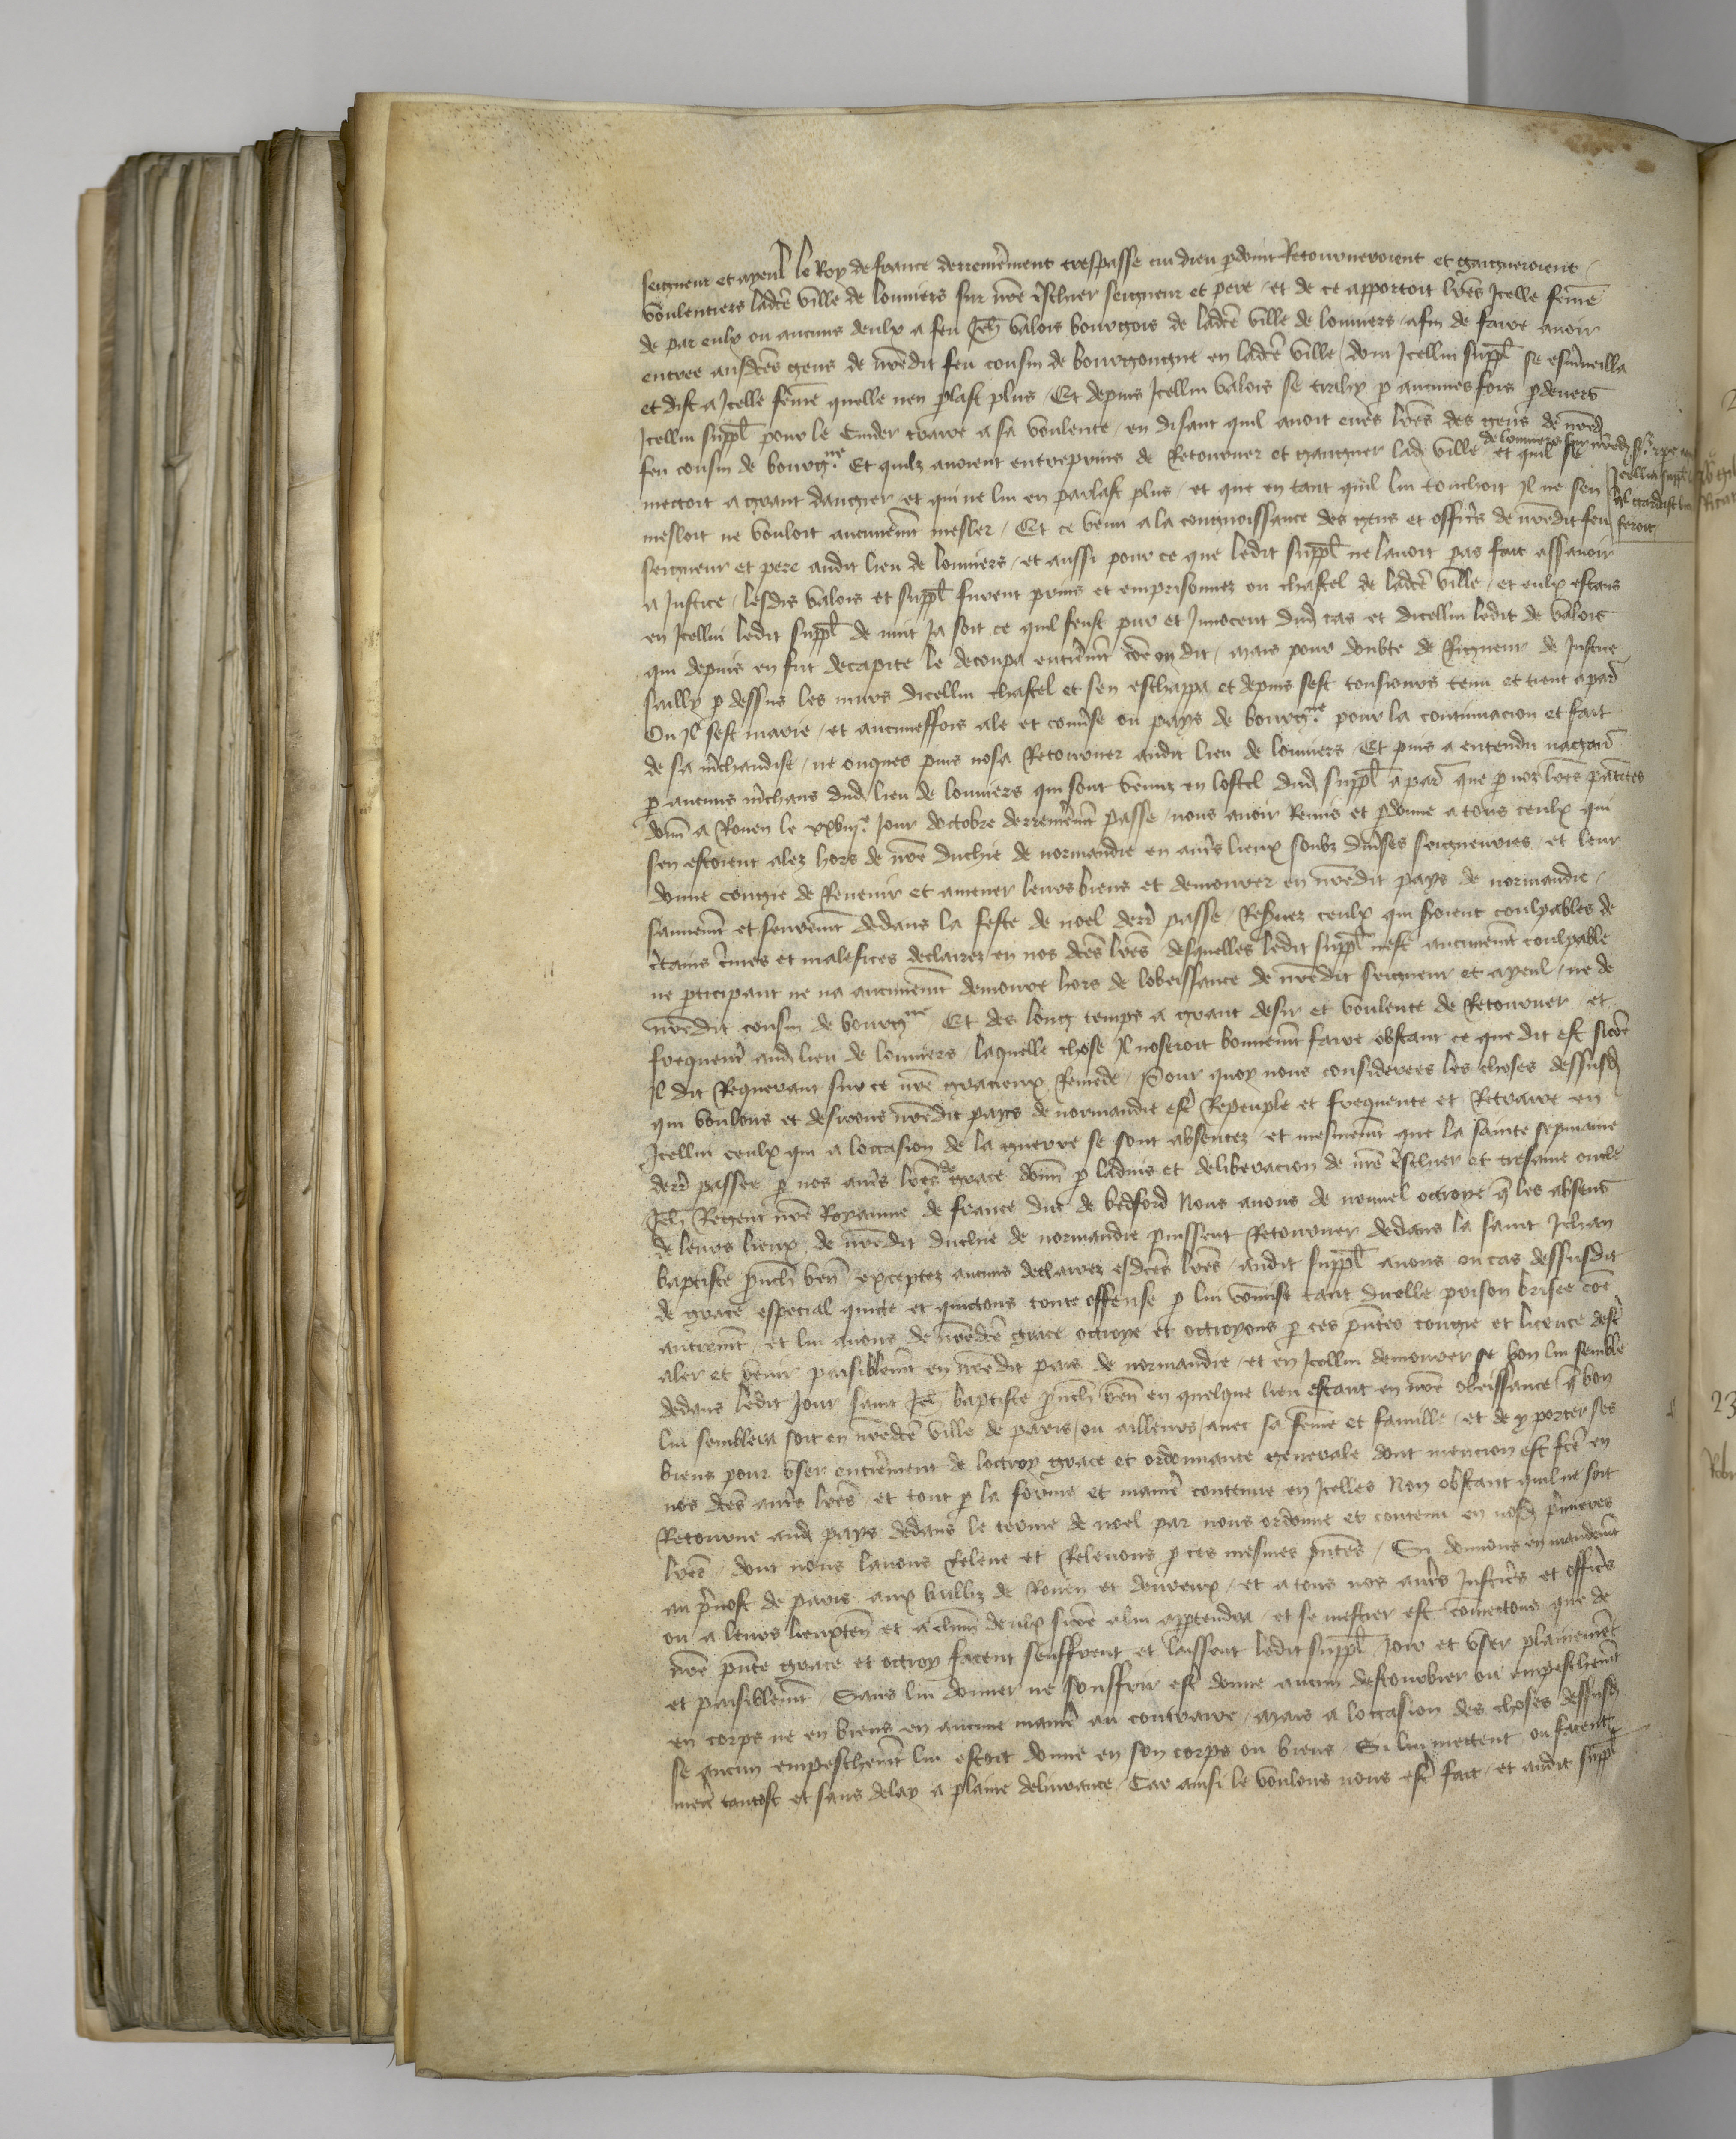 seigneur et ayeul le Roy de france derrenierement trespasse cui dieu pdoint Retourneroient et gaigneroient
voulentiers ladcē ville de louuiers sur nrē tscher seigneur et pere / et de ce apportoit lrēs Icelle femē
de par eulx ou aucuns deulx a feu Jeh̄ valois bourgois de ladcē ville de louuiers / afin de faire auoir
entree ausdcēs gens de nrēdit feu cousin de bourgongne en ladcē ville / dont Icellui suppl̄ se esmueilla
et dist a Icelle femē quelle nen plast plus / Et depuis Icellui valois se trahy p aucunesfois pdeuers
Icellui suppl̄ pour le cuider traire a sa voulente / en disant quil auoit eues lrēs des gens de nrēd
feu cousin de bourgne Et quilz auoient entreprins de Retourner et gaigner lad ville de louuiers sur nrēd sr et pe et quil se
mettoit a grant dangier et qui ne lui en parlast plus / et que en tant quil lui touchoit Il ne sen
Icellui suppl̄
mesloit ne vouloit aucunemt mesler / Et ce venu a la congnoissance des gens et officrs de nrēdit feu
feroit
seigneur et pere audit lieu de louuiers / et aussi pour ce que ledit suppl̄ ne lauoit pas fait assauoir
a Justice / lesdis valois et suppl̄ furent prins et emprisonnez ou chastel de ladcē ville / et eulx estans
en Icellui ledit suppl̄ de nuit Ja soit ce quil feust pur et Innocent dud cas et dicellui ledit de valois
qui depuis en fut decapite le descoupa entieremt cōe on dit / mais pour doubte de Rigueur de Justice
sailly p dessus les murs dicellui chastel et sen eschappa et depuis sest tousiours tenu et tient a par̄
Ou Il sest marie / et aucuneffois ale et conuse ou pays de bourgne pour la continuacion et fait
de sa mchandise / ne onques puis nosa Retourner audit lieu de louuiers / Et puis a entendu nagaires
p aucuns mchans dud lieu de louuiers qui sont venuz en lostel dud suppl̄ a par̄ que p noz lrēs patētes
donn̄ a Rouen le xxviije Jour doctobre derrenieremt passe / nous auoir Remis et pdonne a tous ceulx qui
sen estoient alez hors de nrē duchie de normandie en autrs lieux soubz diuses seigneuries / et leur
donne congie de Reuenir et amener leurs biens et demourer en nrēdit pays de normandie /
sauuemt et seuremt dedans la feste de noel derr̄ passe / Reseruez ceulx qui seroient coulpables de
ctains cmes et malefices declairez en nos dcēs lrēs desquelles ledit suppl̄ nest aucunemt coulpable
ne pticipant ne na aucunemt demoure hors de lobeissance de nrēdit seigneur et ayeul / ne de
nrēdit cousin de bourgne / Et des long temps a grant desir et voulente de Retourner et
frequenter aud lieu de louuiers / laquelle chose Il noseroit bonnemt faire obstant ce que dit est sicōe
Il dit Requerant sur ce nrē gracieux Remede / Pour quoy nous considerees les choses dessusd
qui voulons et desirons nrēdit pays de normandie estre Repeuple et frequente et Retraire en
Icellui ceulx qui a loccasion de la guerre se sont absentez / et mesmemt que la sainte sepmaine
derr̄ passee p nos autrs lrēs de grace donn̄ p laduis et deliberacion de nrē tscher et tresame oncle
Jeh̄ Regent nrē Royaume de france duc de bedford Nous auons de nouuel octroye q̄ les absens
de leurs lieux de nrēdit duchie de normandie puissent Retourner dedans la saint Jehan
baptiste pūch̄ ven̄ exceptez aucuns declairez esdcēs lrēs / audit suppl̄ auons ou cas dessusdit
de grace especial quicte et quictons toute offense p lui commise tant dicelle prison brisee cōe
autremt / et lui auons de nrēdcē grace octroye et octroyons p ces pntes congie et licence dest
aler et venir paisiblemt en nrēdit pais de normandie / et en Icellui demourer se bon lui semble
dedans ledit Jour saint Jeh̄ baptiste pūch̄ ven̄ en quelque lieu estant en nrē obeissance q̄ bon
lui semblera soit en nrēdcē ville de paris / ou ailleurs / auec sa femē et famille / et de y porter ses
biens pour vser entierement de loctroy grace et ordonnance generale dont mencion est fcē en
nos dcēs autrs lrēs / et tout p la forme et manier̄ contenue en Icelles Non obstant quil ne soit
Retourne aud pays dedans le terme de noel par nous ordonne et contenu en nosd pmieres
lrēs / dont nous lauons Releue et Releuons p ces mesmes pntes / Si donnons en mandemt
au preuost de paris aux bailliz de Rouen et deureux / et a tous nos autrs Justicrs et officrs
ou a leurs lieuxten̄ et a chūn deulx sicōe a lui appartendra / et se mestier est commettons que de
nrē pnte grace et octroy facent seuffrent et laissent ledit suppl̄ Joir et vser plainement
et paisiblemt / Sans lui donner ne souffrir estre donne aucun destourbier ou empeschemt
en corps ne en biens en aucune manier̄ au contraire / mais a loccasion des choses dessusd
se aucun empeschemt lui estoit donne en son corps ou biens / Si lui mettent ou facent
mettr̄ tantost et sans delay a plaine deliurance / Car ainsi le voulons nous estre fait / et audit suppl̄
23